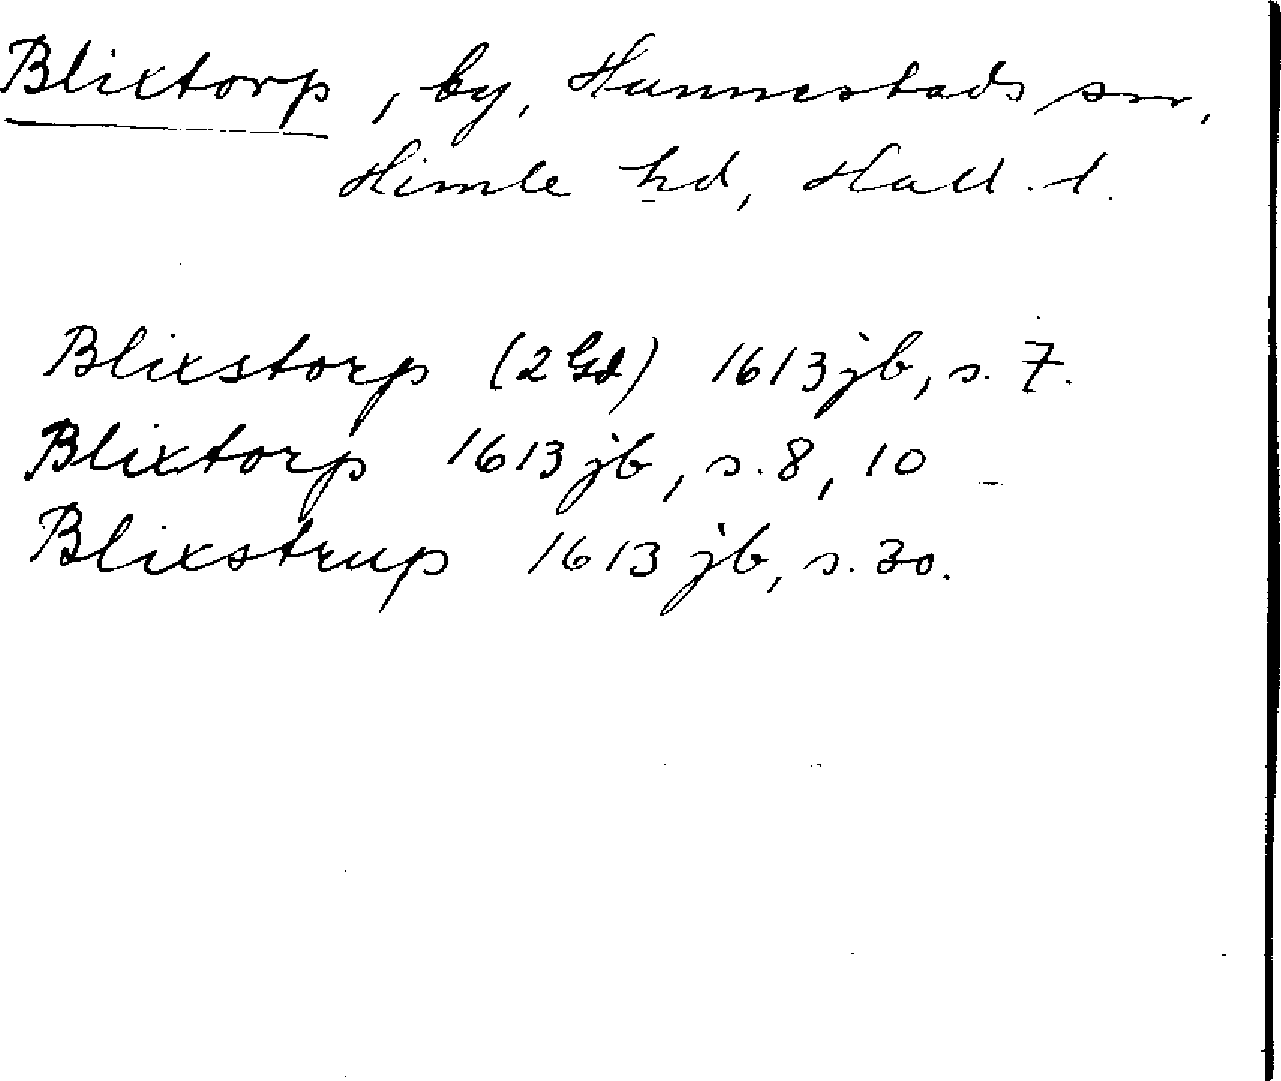 Blixtorp, by, Hunnestads sn,
Himle hd, Hall. l.
Blixstorp (2 Gd) 1613 jb, s. 7.
Blixtorp 1613 jb, s. 8, 10
Blixstrup 1613 jb, s. 30.